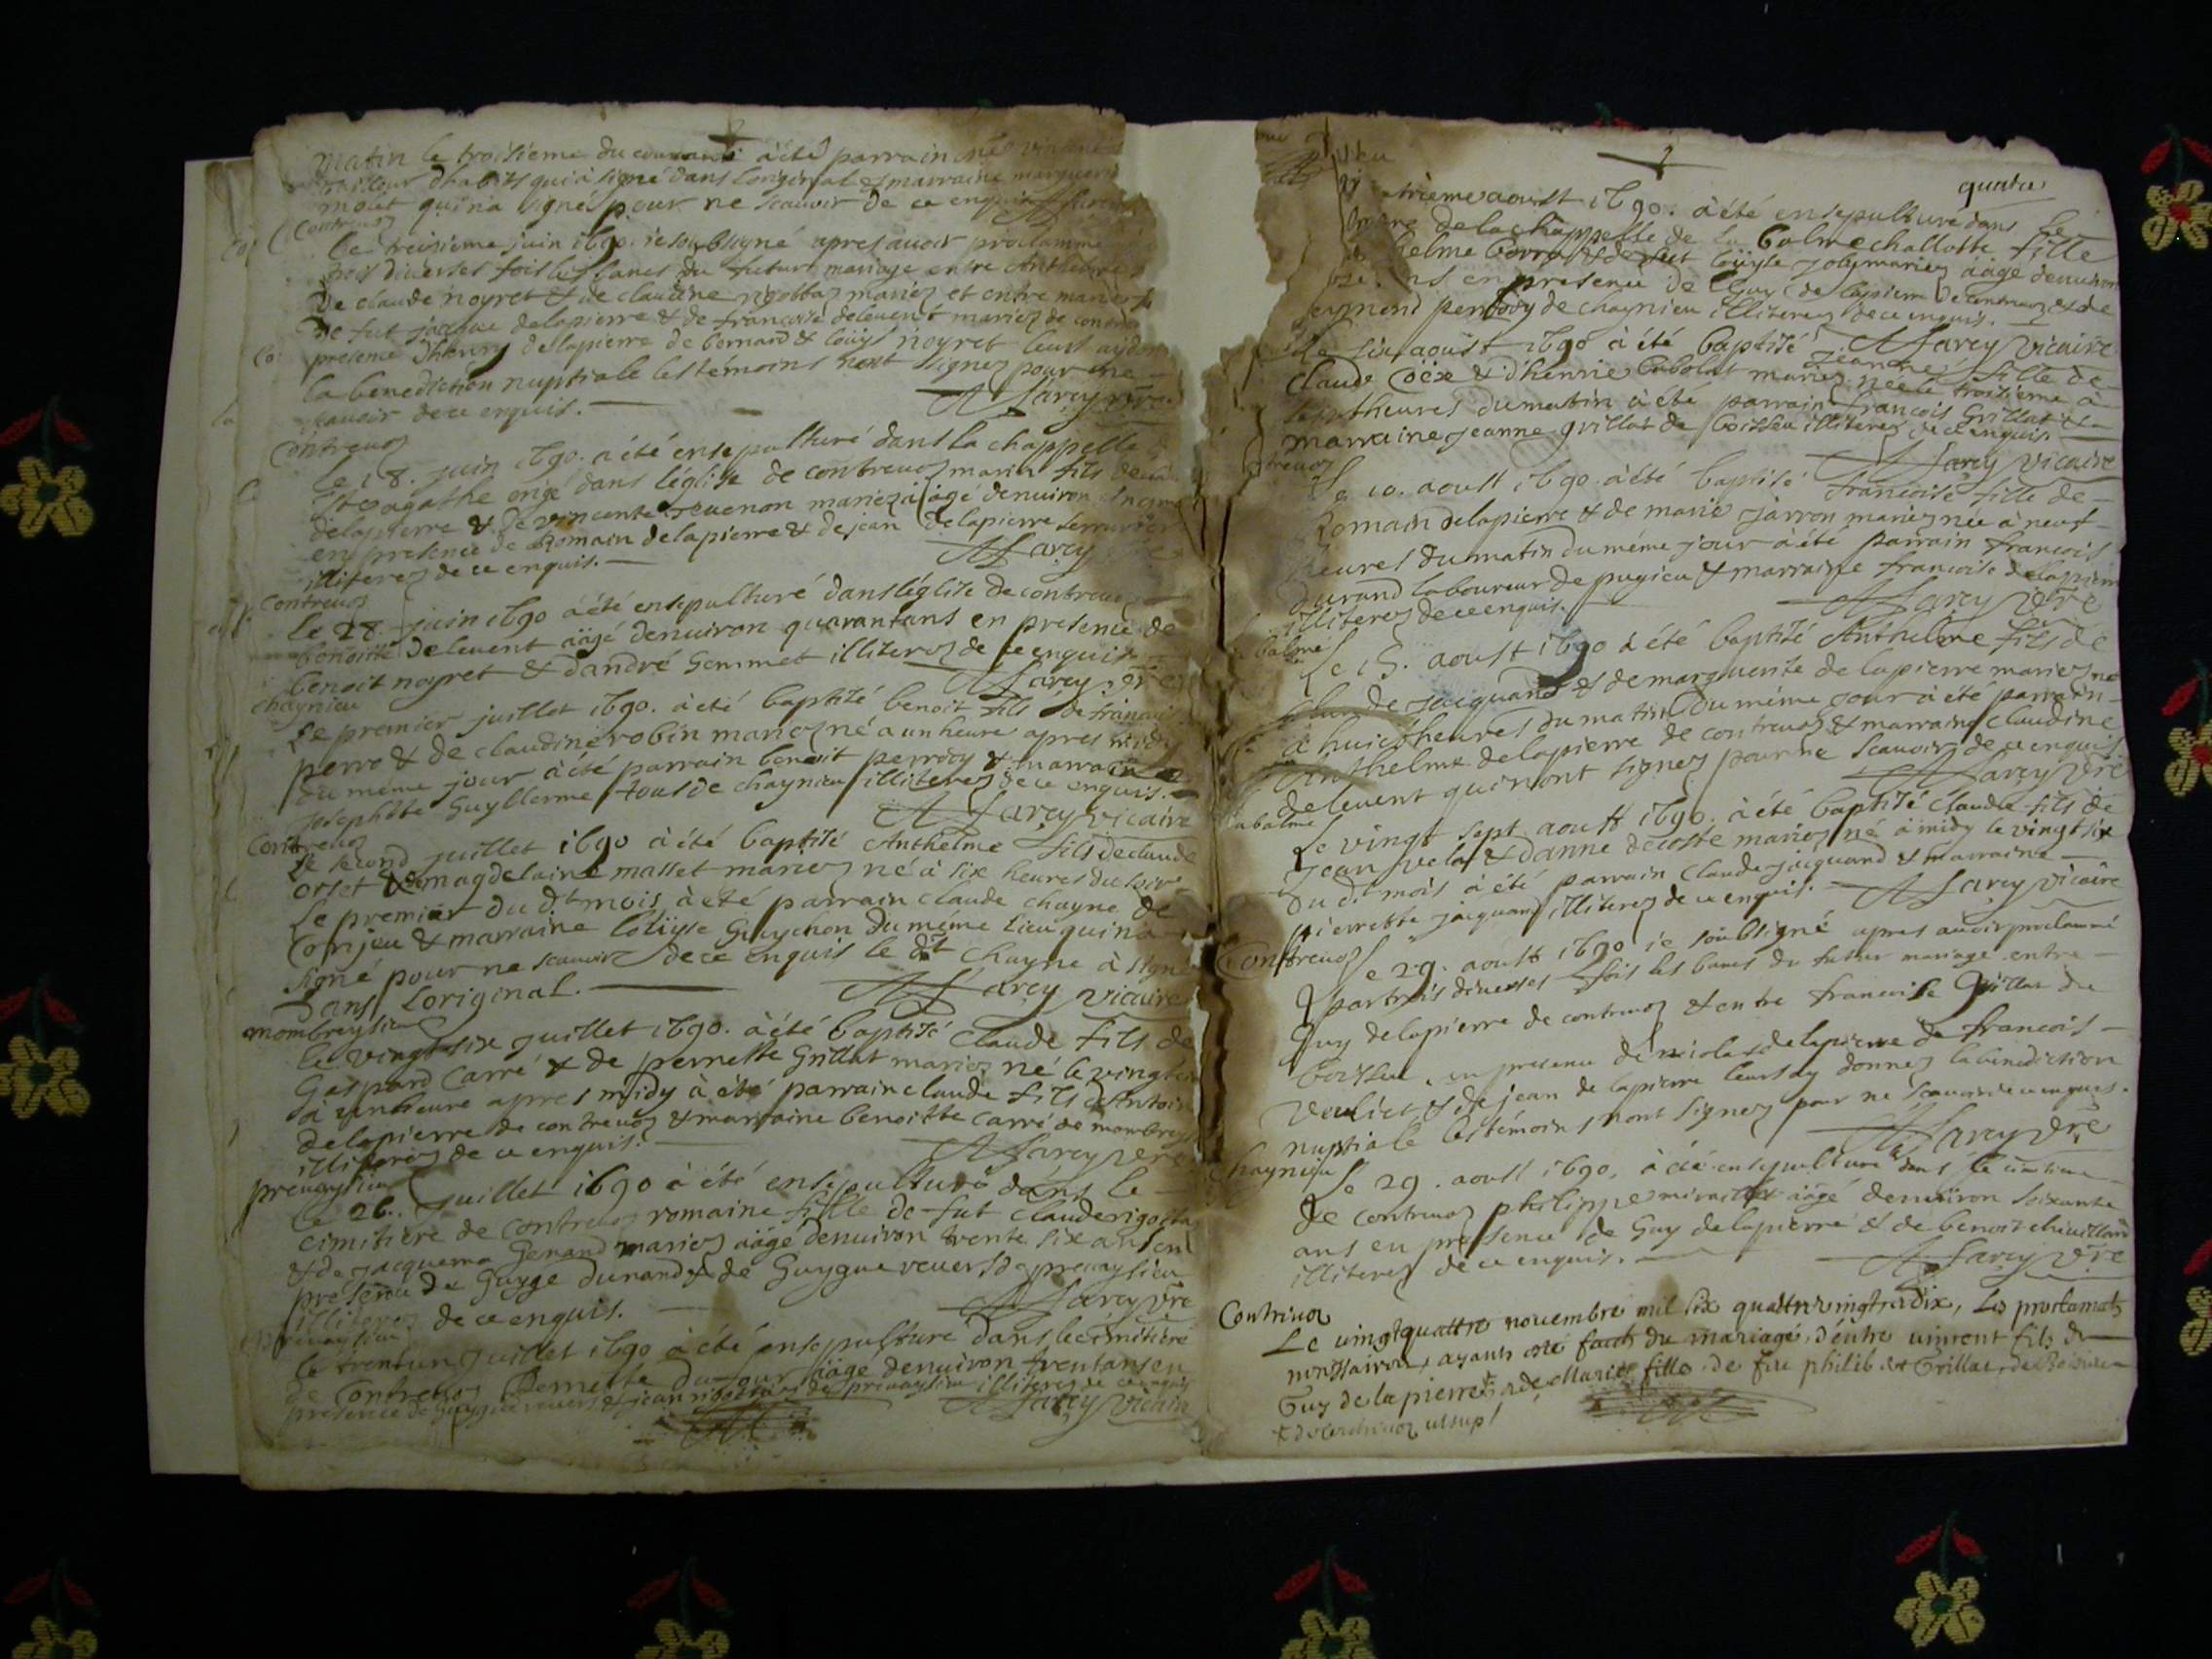 matin le troisieme du courant à été parrain
tailleur dhabits qui à signé dans loriginal & marraine marguerit
mout qui na signé pour ne scauoir de ce enquis
Contreuoz
le treisieme juin 1690. ie soubsigné apres auoir proclammé
trois diuerses fois les bancs du futur mariage entre Anthelme
de claude noyret & de claudine rigottaz mariez et entre
de fut jacque delapierre & de francoise deleuent mariez de contre
presence dhenry delapierre de bernard & loüys noyret leurs ay donn
la benediction nuptiale les témoins nont signez pour ne
scauoir de ce enquis.
A Larcy vre
Contreuoz
le 18. juin 1690. a été ensepulturé dans la chappelle d
Ste agathe erigé dans léglise de contreuoz marin fils de
delapierre & de vincente reuenon mariez ààgé denuiron
en presence de Romain delapierre & de jean delapierre serrurier
illiterez de ce enquis.
A Larcy
Contreuoz
le 28. juin 1690 à été ensepulturé dans léglise de contreuoz
benoitte deleuent ààgé denuiron quarantans en presence de
benoit noyret & dandré Gemmet illiterez de ce enquis
A Larcy vre
chaynieu
Le premier juillet 1690. à été baptisé benoit fils de francois
perro & de claudine robin mariez né a un heure apres midy
du méme jour à été parrain benoit perrody & marraine
josephtte Guyllerme tous de chaynieu illiterez de ce enquis.
A Larcy vicaire
Contreuoz
Le second juillet 1690 à été baptisé Anthelme fils de claude
orset & de magdelaine masset mariez né à six heures du soir
Le premier du dt mois à été parrain claude chayne de
Conjeu & marraine loüyse Guychon du méme lieu qui na
signé pour ne scauoir de ce enquis le dt Chayne à signé
Dans Loriginal.
A Larcy vicaire
mombreysieu
le vingt-six juillet 1690. à été baptisé Claude fils de
Gaspard Carré & de pernette Grillat mariez né le vingt
à un heure apres midy à été parrain claude fils dAntoin
delapierre de contreuoz & marraine benoitte carré de mombrey
illiterez de ce enquis.
A Larcy vre
preueysieu
le 26. juillet 1690 à été ensepulturé dans le
cimitière de contreuoz romaine fille de fut claude rigotta
& de jacquema Genand mariez ààgé denuiron trente six ans en
presence de Guyge durand & de Guygue reuerst de preueysieu
illiterez de ce enquis.
A Larcy vre
preueysieu
le trentun juillet 1690 à été ensepulturé dans le cimitière
de Contreuoz Pernette Dufour ààgé denuiron trentans en
presence de Guygue reuerst & jean de preueysieu illiterez de ce enquis
A Larcy vicaire
quatre
trième aoust 1690. à été ensepulturé dans le
delachappelle de la balme challotte fille
helme & de fut loüyse joly mariez ààgé denuiron
ans en presence de Guy delapierre de contreuoz & de
eymond perrody de chaynieu illiterez de ce enquis.
A Larcy vicaire
Le six aoust 1690 à été baptisé jeanne fille de
claude Goix & dhenrie mariez née le troisieme à
sept heures du matin à été parrain francois Grillat &
marraine jeanne grillat de boissieu illiterez de ce enquis
A Larcy vicaire
treuoz
Le 10. aoust 1690. à été baptisé francoise fille de
Romain delapierre & de marie jarron mariez née à neuf
heures du matin du méme jour à été parrain francois
durand laboureur de pugieu & marraine francoise delapierre
illiterez de ce enquis.
A Larcy vre
balme
Le 15. aoust 1690 à été baptisé Anthelme fils de
claude jacquand & de marguerite de lapierre mariez né
à huict heures du matin du méme jour à été parrain
Anthelme delapierre de contreuoz & marraine claudine
deleuent qui nont signez pour ne scauoir de ce enquis.
A Larcy vre
labalme
Le vingt sept aoust 1690. à été baptisé Claude fils de
jean vela & danne decoste mariez né à midy le vingt six
du dt mois à été parrain claude jacquand & marraine
pierrette jacquand illiterez de ce enquis.
A Larcy vicaire
Contreuoz
Le 29. aoust 1690 ie soubsigné apres auoir proclamé
par trois diuerses fois les bancs du futur mariage entre
Guy delapierre de contreuoz & entre francoise Grillat de
boissieu en presence de nicolas delapierre de francois
Veuliet & de jean de lapierre leurs ay donnez la benediction
nuptiale les témoins nont signez pour ne scauoir de ce enquis.
A Larcy vre
Chaynieu
Le 29. aoust 1690. à été ensepulturé dans le cimitiere
de contreuoz philippe ààgé denuiron soixante
ans en presence de Guy delapierre & de benoit chiuillard
illiterez de ce enquis.
A Larcy vre
Contreuoz
Le uingtquattre nouembre mil six quattreuingts & dix, Les proclamats
necessaires ayants été faicts du mariage dentre uincent fils de
Guy de la pierre & de Marie fille de feu philibert Grillat de Boissieu
& de Contreuoz ut sup